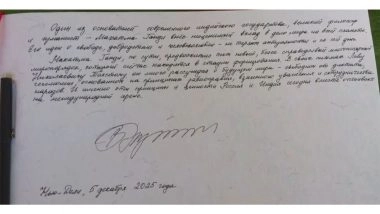 Один из основателей современного индийского государства, великий философ
и гуманист – Махатма Ганди внёс неоценимый вклад в дело мира на всей планете.
Его идеи о свободе, добродетели и человеколюбии не теряют актуальности и по сей день.
Махатма Ганди, по сути, предвосхитил тот новый, более справедливый многополярный
миропорядок, который сейчас находится в стадии формирования. В своих письмах Льву
Николаевичу Толстому он много рассуждал о будущем мира – свободном от диктата,
основанном на принципах равноправия, взаимного уважения и сотрудничества
народов. И именно эти принципы и ценности Россия и Индия сегодня вместе отстаивают
на международной арене.
Нью-Дели, 5 декабря 2025 года